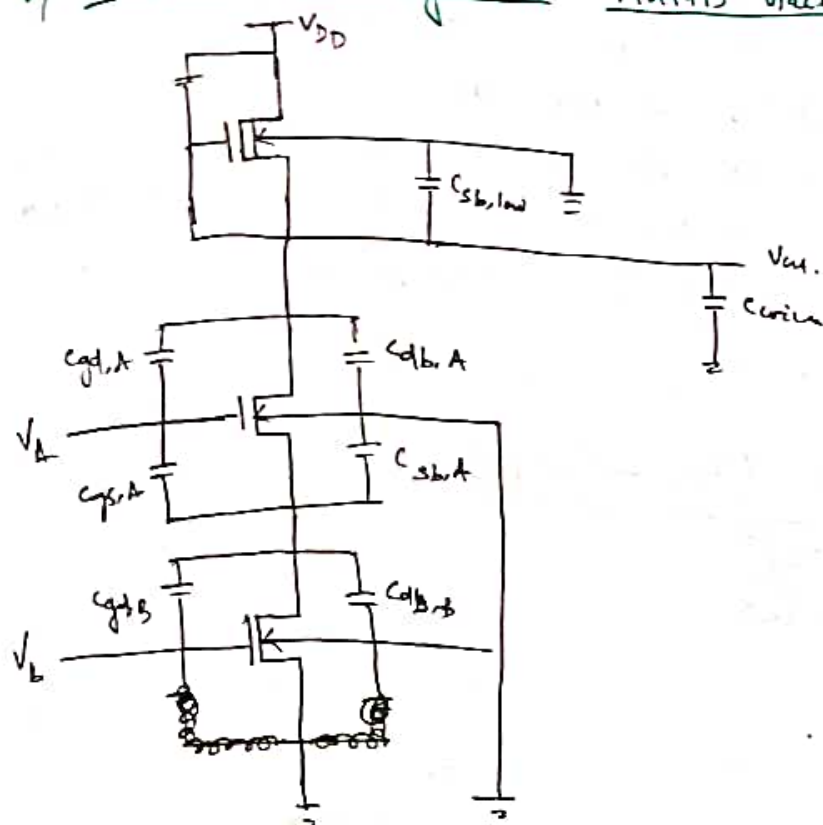 V_DD
C_sb,load
Vout.
C_gd,A
C_db,A
V_A
C_gs,A
C_sb,A
C_gd,B
C_db,B
V_b